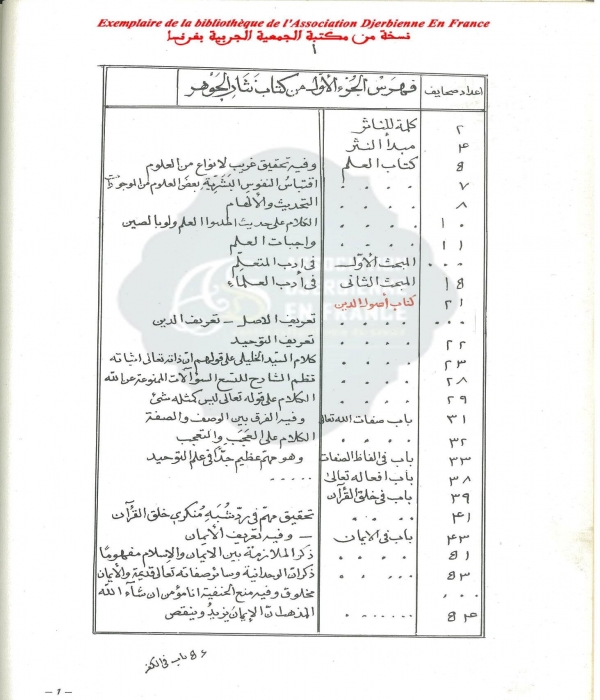 Exemplaire de la bibliothèque de l'Association Djerbienne En France
نسخة من مكتبة الجمعية الجربية بفرنسا
١
اعداد صحايف فهرس الجزء الأول من كتاب نثار الجوهر
٢ كلمة للناثر
٤ مبدأ النثر
٥ كتاب العلم وفيه تحقيق غريب لانواع من العلوم
٧ . . . . اقتباس النفوس البشرية بعض العلوم من الموجودات
٨ . . . . التحديث والألهام
١٠ . . . . الكلام على حديث اطلبوا العلم ولو بالصين
١١ . . . . واجبات العلم
. . . المبحث الأول في أدب المتعلم
١٥ المبحث الثاني في أدب العلماء
٢١ كتاب أصول الدين
. . . . . . . تعريف الاصل - تعريف الدين
٢٢ . . . . تعريف التوحيد
٢٣ . . . . كلام السيد الخليلي على قولهم ان ذاته تعالى اثباته
٢٨ . . . . نظم الشارح للتسع السؤالات الممنوعة عن الله
٢٩ . . . . الكلام على قوله تعالى ليس كمثله شئ
٣١ باب صفات الله تعالى وفيه الفرق بين الوصف والصفة
٣٢ . . . . الكلام على العجب والتعجب
٣٣ باب في الفاظ الصفات وهو مهم عظيم جدا في علم التوحيد
٣٨ باب افعاله تعالى . . . . .
٣٩ باب في خلق القرآن
٤١ . . . . تحقيق مهم في رد شبه منكري خلق القرآن
٤٣ باب في الايمان - وفيه تعريف الأيمان
٥١ . . . . ذكر الملازمة بين الايمان والاسلام مفهوما
٥٣ . . . . ذكر ان الوحدانية وسائر صفاته تعالى قديمة والأيمان
. . . . . . . مخلوق وفيه منع الحنفية انا مؤمن ان شاء الله
٥٤ . . . . . . . المذهب ان الإيمان يزيد و ينقص
٥٦ باب في الكفر
- 1 -